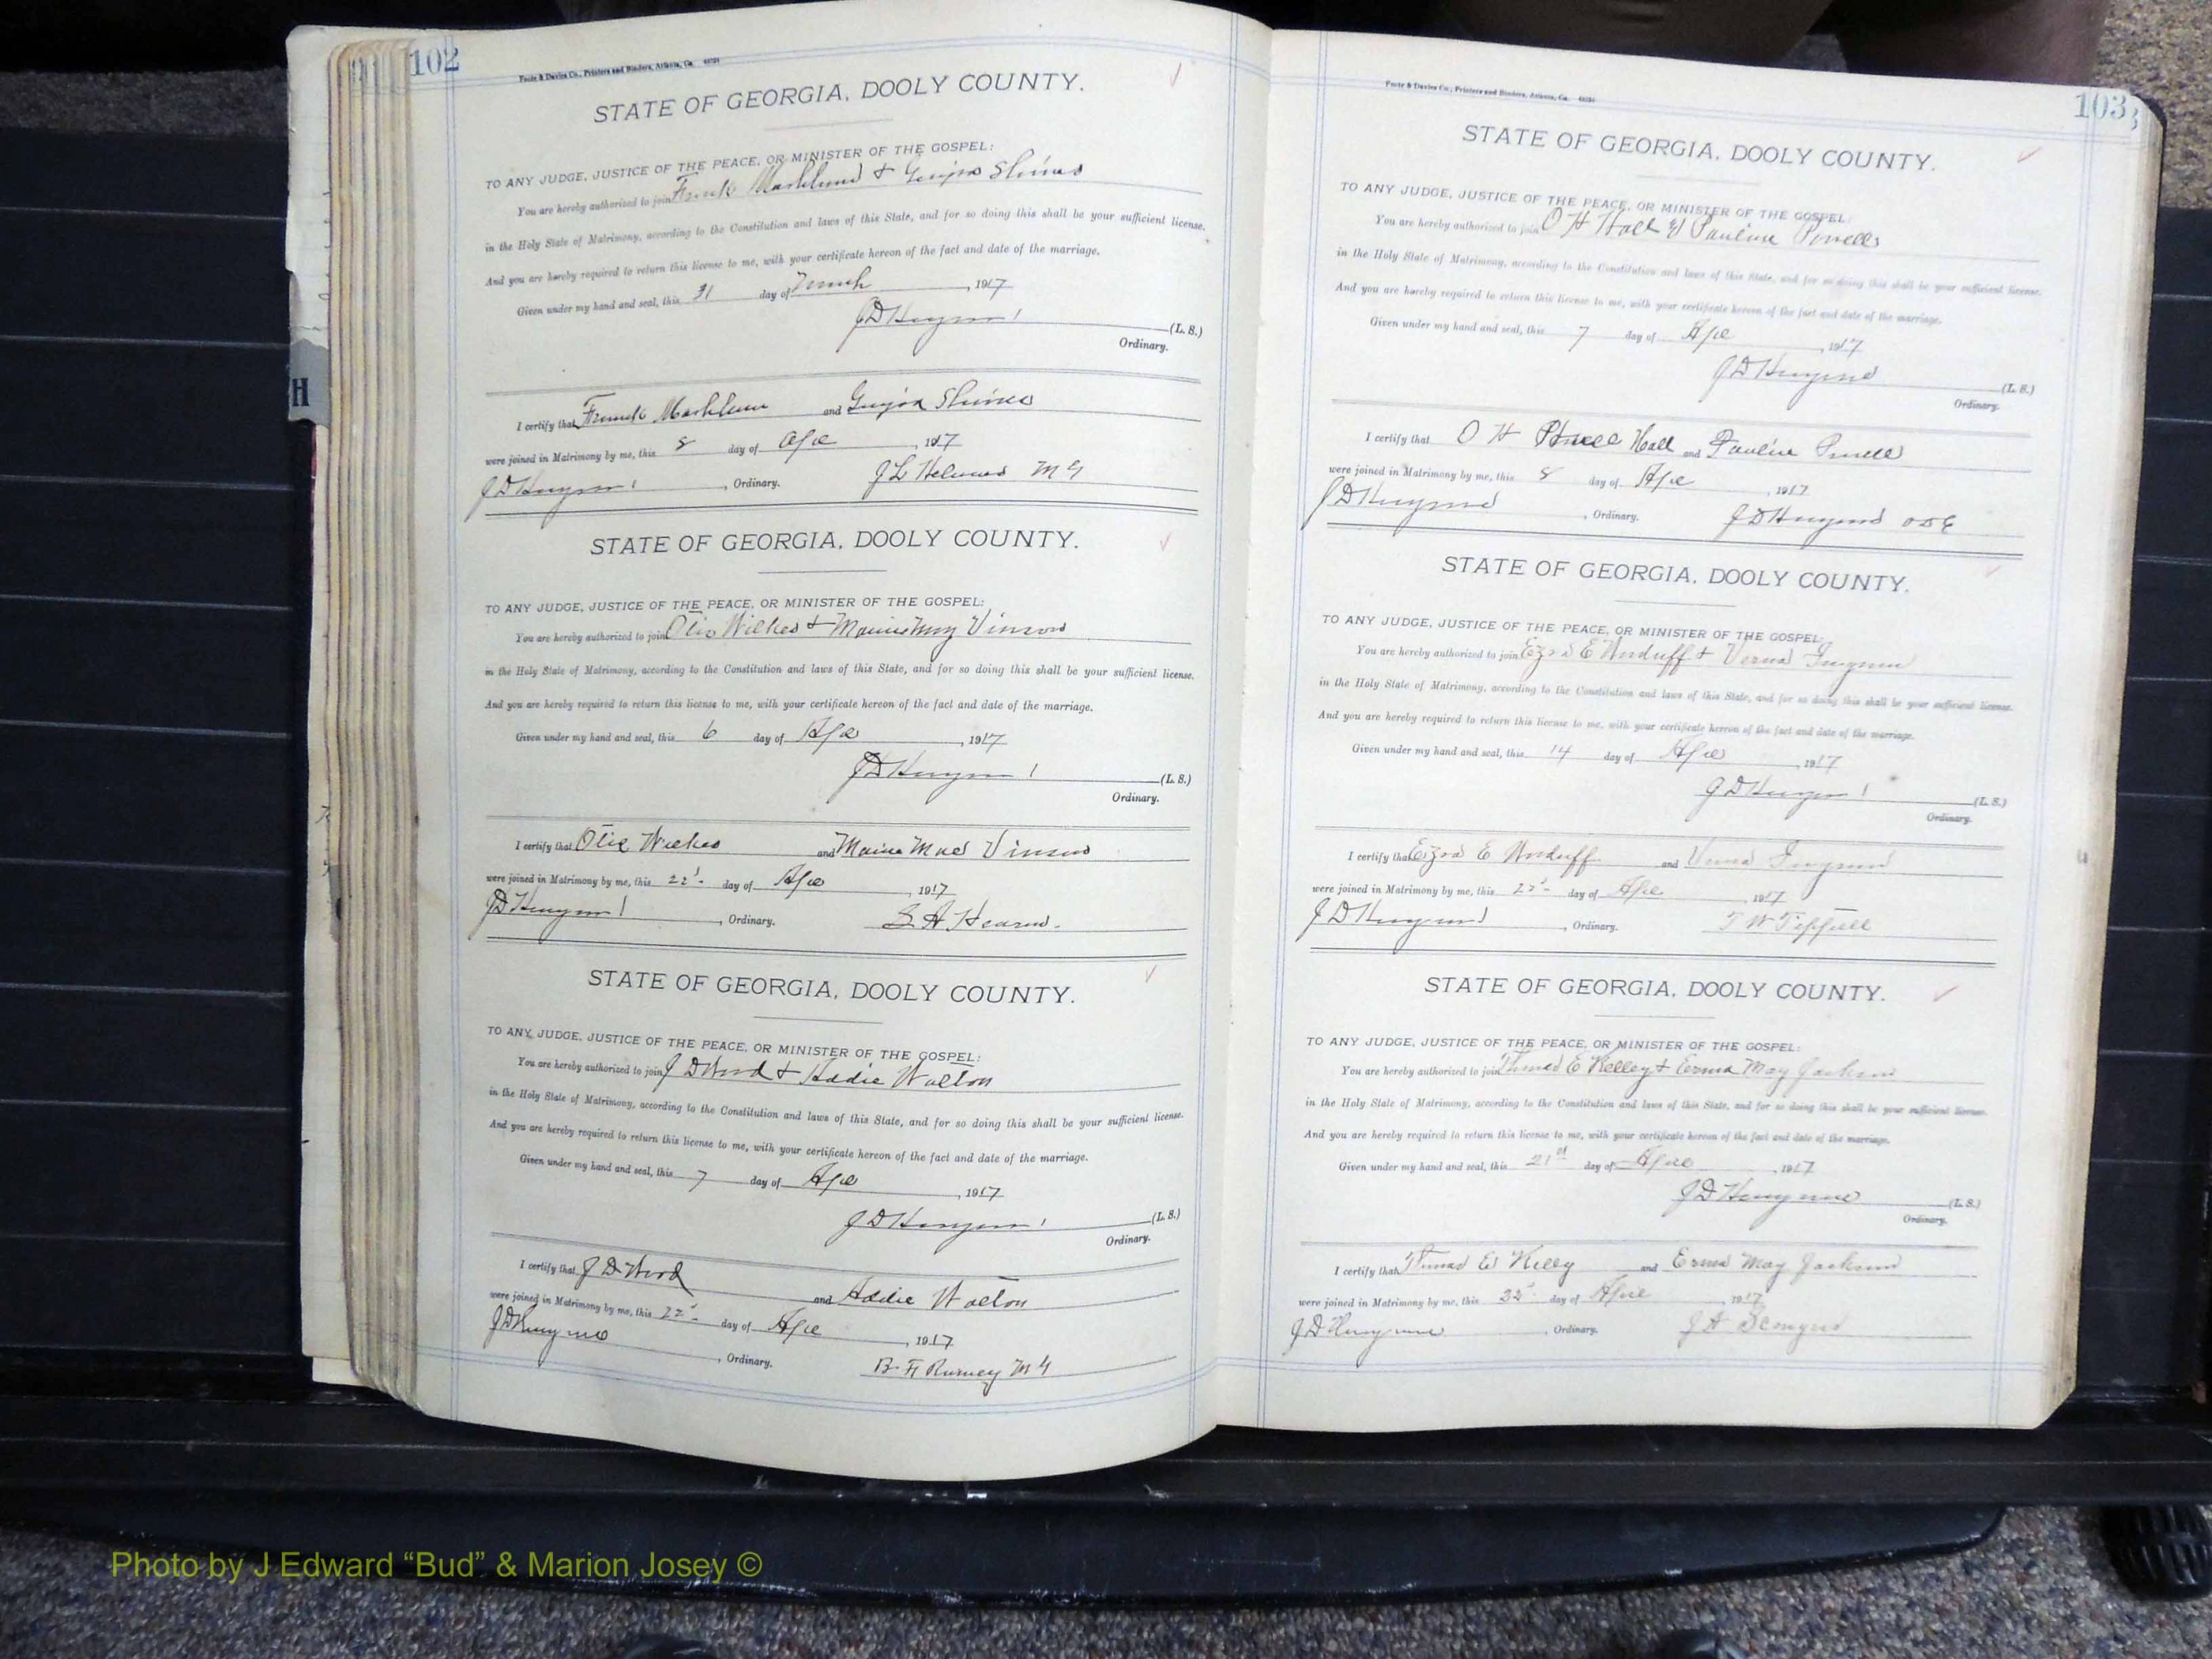 102
Foote & Davies Co., Printers and Binders, Atlanta, Ga.
STATE OF GEORGIA, DOOLY COUNTY.
TO ANY JUDGE, JUSTICE OF THE PEACE, OR MINISTER OF THE GOSPEL:
You are hereby authorized to join Frank &
in the Holy State of Matrimony, according to the Constitution and laws of this State, and for so doing this shall be your sufficient license.
And you are hereby required to return this license to me, with your certificate hereon of the fact and date of the marriage.
Given under my hand and seal, this 31 day of March, 1917
J D (L. S.)
Ordinary.
I certify that Frank and
were joined in Matrimony by me, this 8 day of Apl, 1917
J D , Ordinary. J L Helms M G
STATE OF GEORGIA, DOOLY COUNTY.
TO ANY JUDGE, JUSTICE OF THE PEACE, OR MINISTER OF THE GOSPEL:
You are hereby authorized to join Otis Wilkes + Vinson
in the Holy State of Matrimony, according to the Constitution and laws of this State, and for so doing this shall be your sufficient license.
And you are hereby required to return this license to me, with your certificate hereon of the fact and date of the marriage.
Given under my hand and seal, this 6 day of Apl, 1917
J D (L. S.)
Ordinary.
I certify that Otis Wilkes and Mae Vinson
were joined in Matrimony by me, this 22 day of Apl, 1917
J D , Ordinary. A Hearn.
STATE OF GEORGIA, DOOLY COUNTY.
TO ANY JUDGE, JUSTICE OF THE PEACE, OR MINISTER OF THE GOSPEL:
You are hereby authorized to join J D Word + Addie Walton
in the Holy State of Matrimony, according to the Constitution and laws of this State, and for so doing this shall be your sufficient license.
And you are hereby required to return this license to me, with your certificate hereon of the fact and date of the marriage.
Given under my hand and seal, this 7 day of Apl, 1917
J D (L. S.)
Ordinary.
I certify that J D Word and Addie Walton
were joined in Matrimony by me, this 22 day of Apl, 1917
J D , Ordinary. B. F. M G
103
Foote & Davies Co., Printers and Binders, Atlanta, Ga.
STATE OF GEORGIA, DOOLY COUNTY.
TO ANY JUDGE, JUSTICE OF THE PEACE, OR MINISTER OF THE GOSPEL:
You are hereby authorized to join O H Hall & Pauline Powell
in the Holy State of Matrimony, according to the Constitution and laws of this State, and for so doing this shall be your sufficient license.
And you are hereby required to return this license to me, with your certificate hereon of the fact and date of the marriage.
Given under my hand and seal, this 7 day of Apl, 1917
J D (L. S.)
Ordinary.
I certify that O H Powell Hall and Pauline Powell
were joined in Matrimony by me, this 8 day of Apl, 1917
J D , Ordinary. J D
STATE OF GEORGIA, DOOLY COUNTY.
TO ANY JUDGE, JUSTICE OF THE PEACE, OR MINISTER OF THE GOSPEL:
You are hereby authorized to join Ezra E Woduff + Verna
in the Holy State of Matrimony, according to the Constitution and laws of this State, and for so doing this shall be your sufficient license.
And you are hereby required to return this license to me, with your certificate hereon of the fact and date of the marriage.
Given under my hand and seal, this 14 day of Apl, 1917
J D (L. S.)
Ordinary.
I certify that Ezra E Woduff and Verna
were joined in Matrimony by me, this 22 day of Apl, 1917
J D , Ordinary. T W
STATE OF GEORGIA, DOOLY COUNTY.
TO ANY JUDGE, JUSTICE OF THE PEACE, OR MINISTER OF THE GOSPEL:
You are hereby authorized to join Thomas E Kelley + Erma May Jackson
in the Holy State of Matrimony, according to the Constitution and laws of this State, and for so doing this shall be your sufficient license.
And you are hereby required to return this license to me, with your certificate hereon of the fact and date of the marriage.
Given under my hand and seal, this 21st day of Apl, 1917
J D (L. S.)
Ordinary.
I certify that Thomas E Kelly and Erma May Jackson
were joined in Matrimony by me, this day of Apl, 1917
J D , Ordinary. J A
H
Photo by J Edward “Bud” & Marion Josey ©